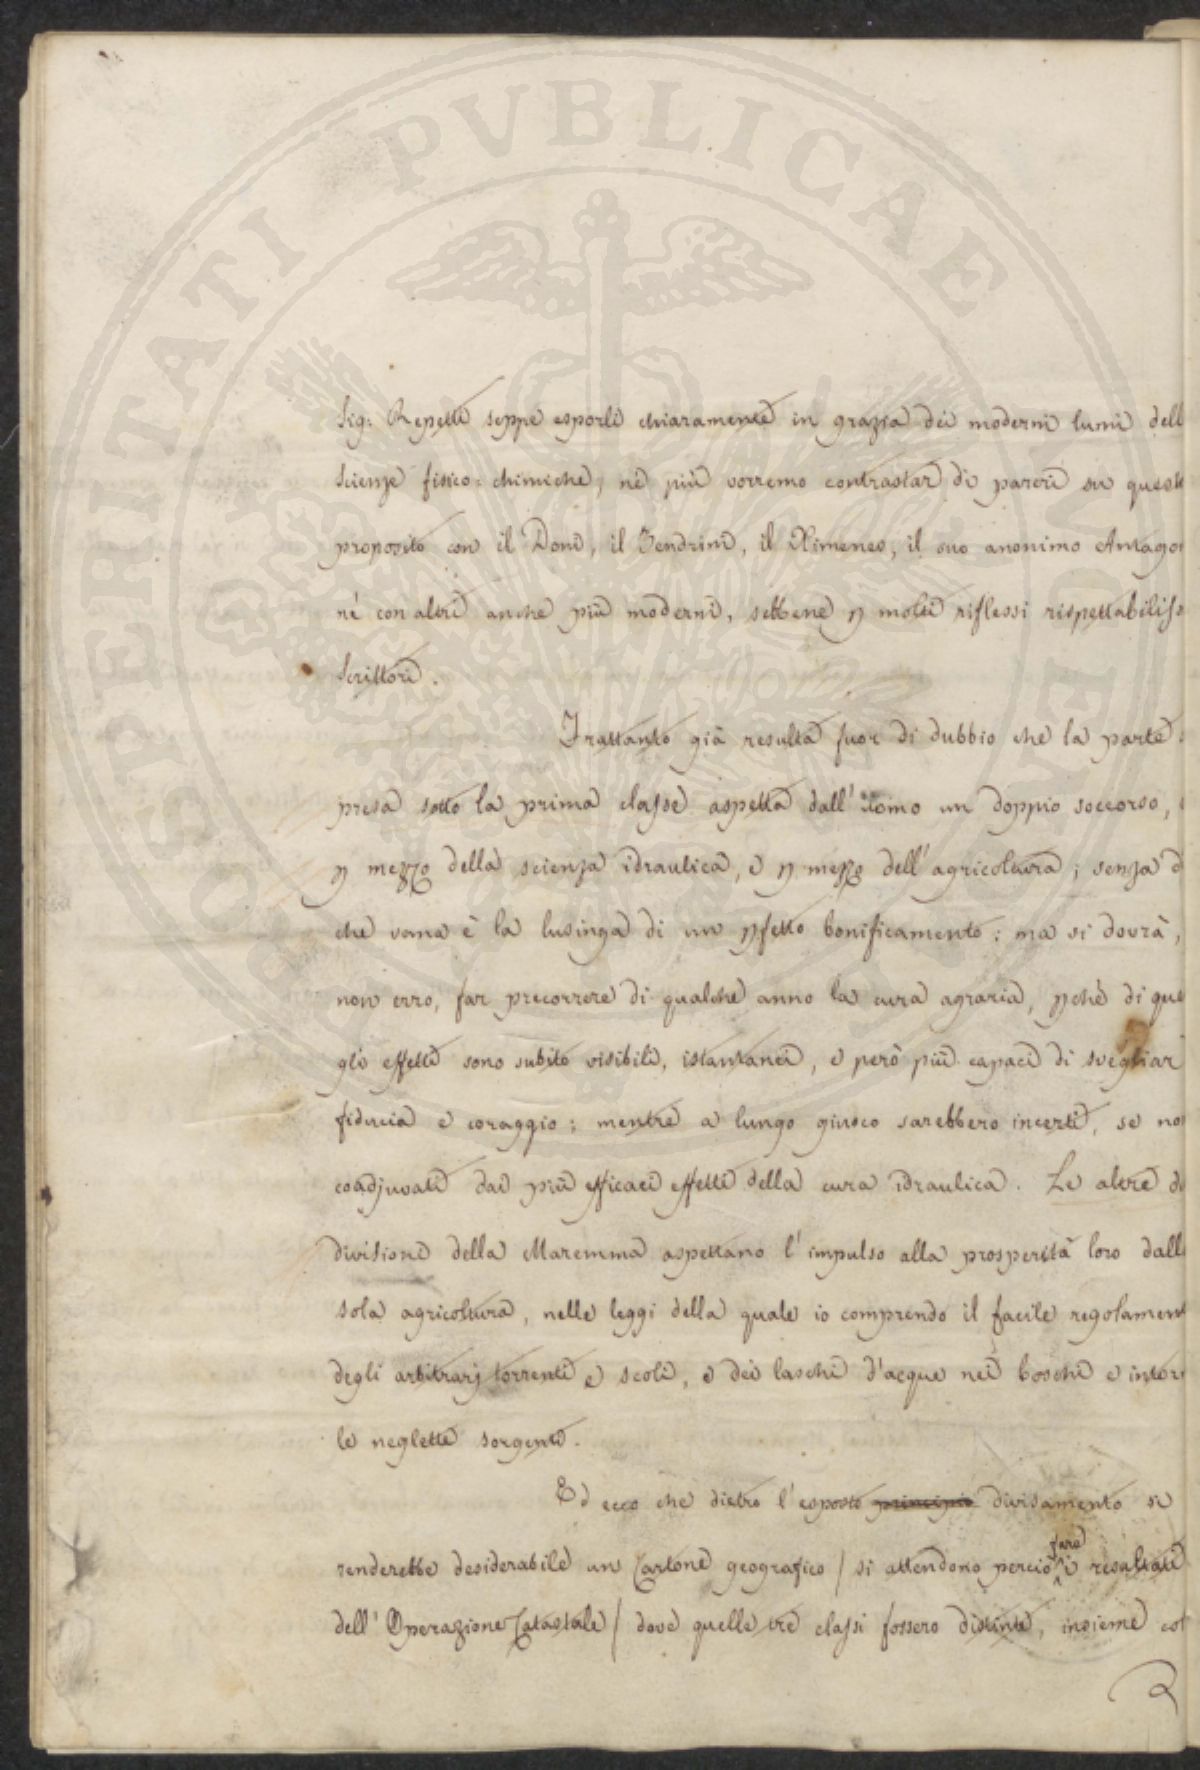 PROSPERITATI PVBLICAE
Sig: Repetti seppe esporli chiaramente in grazia dei moderni lumi dell
scienze fisico=chimiche; nè più vorremo contrastar di pareri su quest
proposito con il Doni, il Zendrini, il Ximenes, il suo anonimo Antago
nè con altri anche più moderni, sebbene p molti riflessi rispettabiliss
Scrittori.
Frattanto già resulta fuor di dubbio che la parte
presa sotto la prima classe aspetta dall' uomo un doppio soccorso,
p mezzo della scienza idraulica, e p mezzo dell' agricoltura; senza d
che vana è la lusinga di un pfetto bonificamento: ma si dovrà,
non erro, far precorrere di qualche anno la cura agraria, pchè di que
gli effetti sono subito visibili, istantanei, e però più capaci di svegliar
fiducia e coraggio: mentre a lungo giuoco sarebbero incerti, se non
coadjuvati dai più efficaci effetti della cura idraulica. Le altre d
divisioni della Maremma aspettano l' impulso alla prosperità loro dall
sola agricoltura, nelle leggi della quale io comprendo il facile regolament
degli arbitrarj torrenti e scoli, e dei laschi d'acque nei boschi e intor
le neglette sorgenti.
Ed ecco che dietro l' esposto principio divisamento si
fare
renderebbe desiderabile un Cartone geografico / si attendono perciò i resultati
dell' Operazione Catastale / dove quelle tre classi fossero distinte, insieme co